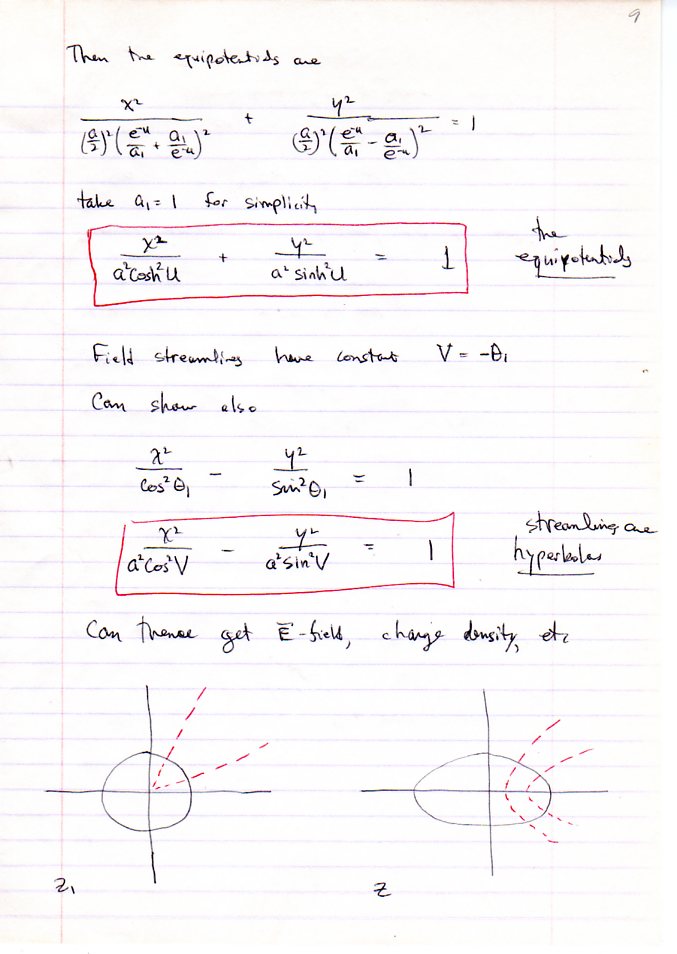 9
Then the equipotentials are
x²/((a/2)²(e⁻ᵘ/a₁ + a₁/e⁻ᵘ)²) + y²/((a/2)²(e⁻ᵘ/a₁ - a₁/e⁻ᵘ)²) = 1
take a₁ = 1 for simplicity
x²/(a²cosh²U) + y²/(a² sinh²U) = 1
the
equipotentials
Field streamlines have constant V = -θ₁
Can show also
x²/(cos²θ₁) - y²/(sin²θ₁) = 1
x²/(a²cos²V) - y²/(a²sin²V) = 1
streamlines are
hyperbolas
Can thence get E̅-field, charge density, etc
z₁
z